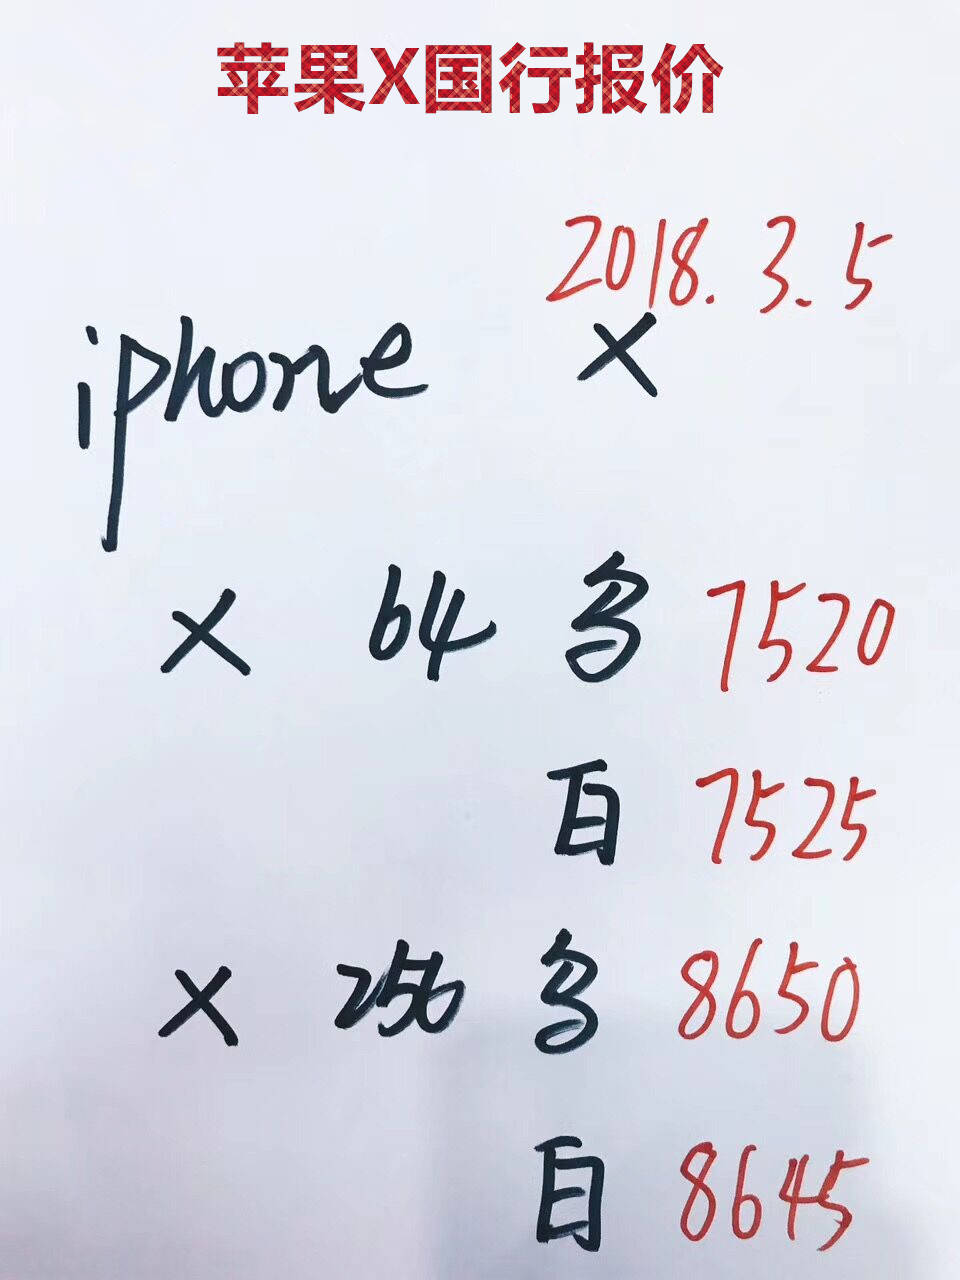 苹果X国行报价
2018.3.5
iphone X
X 64 7520
白 7525
X 256 8650
白 8645